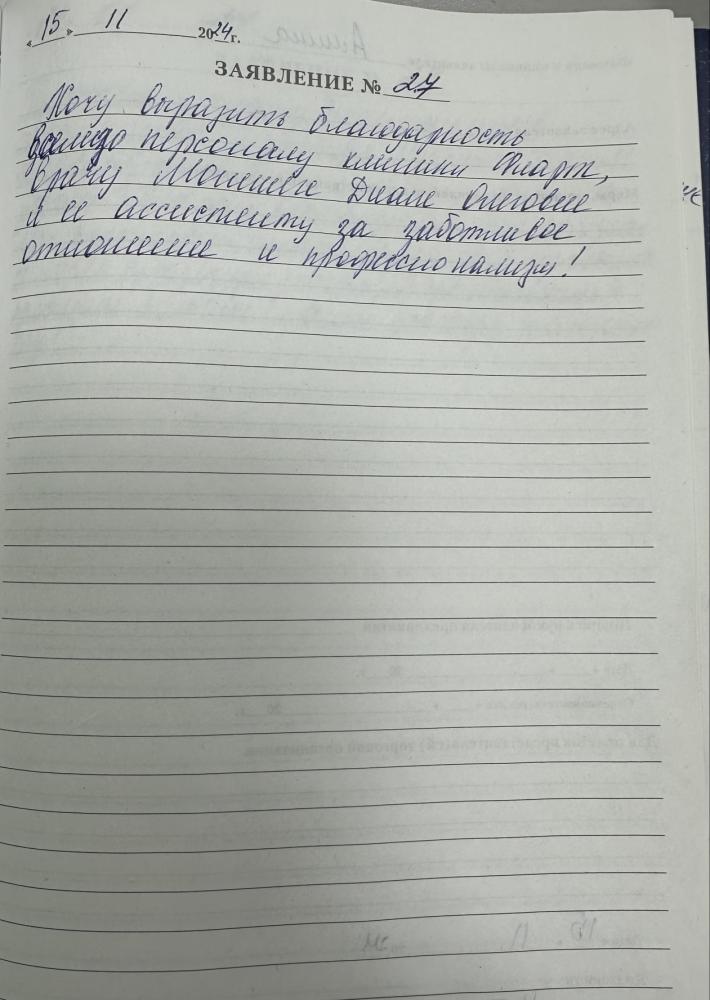 « 15 » 11 2024 г.
ЗАЯВЛЕНИЕ № 27
Хочу выразить благодарность
всему персоналу клиники
врачу Диане Олеговне
и ее ассистенту за заботливое
отношение и профессионализм!